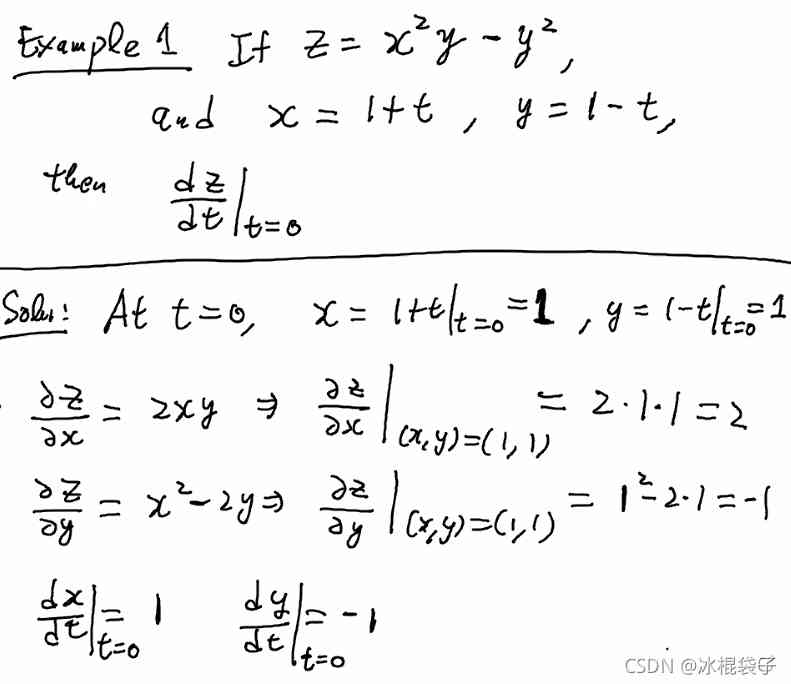 Example 1 If z = x²y - y²,
and x = 1+t , y = 1-t,
then dz/dt|t=0
Solu: At t=0, x = 1+t|t=0 = 1 , y = 1-t|t=0 = 1
∂z/∂x = 2xy ⇒ ∂z/∂x|(x,y)=(1,1) = 2·1·1 = 2
∂z/∂y = x²-2y ⇒ ∂z/∂y|(x,y)=(1,1) = 1²-2·1 = -1
dx/dt|t=0 = 1 dy/dt|t=0 = -1
CSDN @冰棍袋子